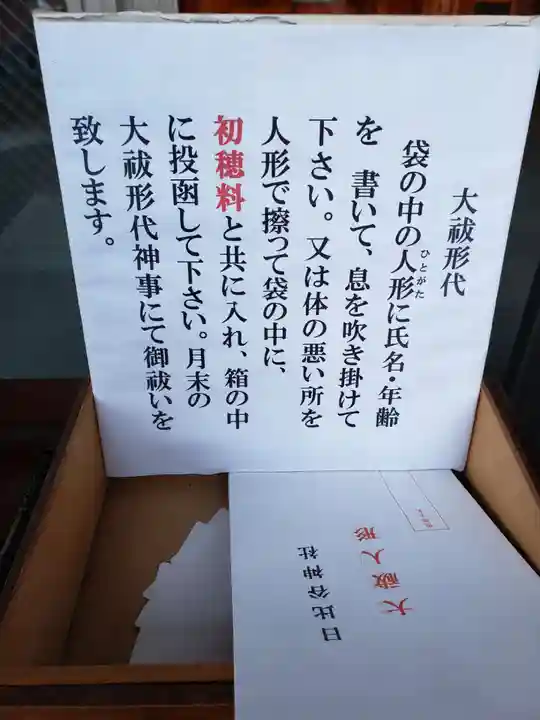 大祓形代
袋の中の人形に氏名・年齢
ひとがた
を　書いて、息を吹き掛けて
下さい。又は体の悪い所を
人形で擦って袋の中に、
初穂料と共に入れ、箱の中
に投函して下さい。月末の
大祓形代神事にて御祓いを
致します。
大祓人形
日比谷神社